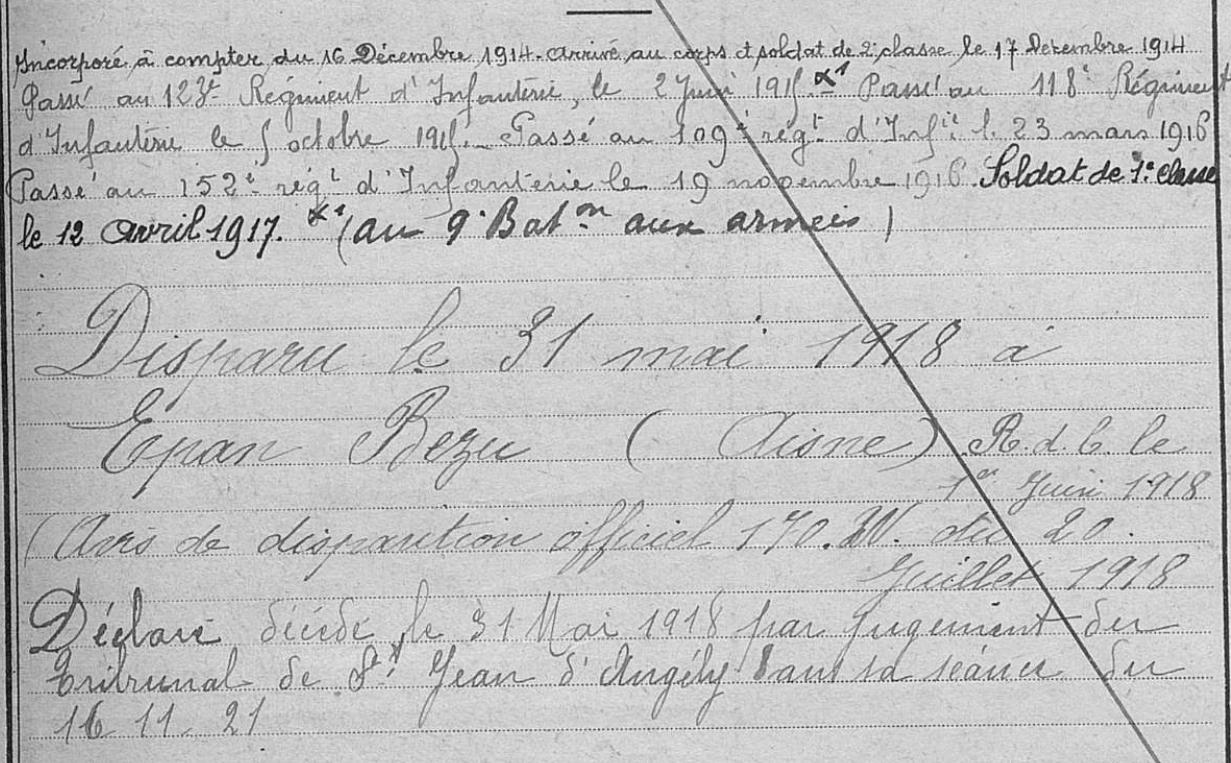 Incorporé à compter du 16 Décembre 1914. arrivé au corps et soldat de 2e classe le 17 Décembre 1914
Passé au 123e Régiment d'Infanterie, le 2 Juin 1915. Passé au 118e Régiment
d'Infanterie le 5 octobre 1915. Passé au 109e régt d'Infie le 23 mars 1916
Passé au 152e régt d'Infanterie le 19 novembre 1916. Soldat de 1e classe
le 12 avril 1917. (au 9e Baton aux armées)
Disparu le 31 mai 1918 à
Epau Bezu (Aisne) R.d.C. le
1er Juin 1918
(Avis de disparition officiel 170. W. du 20.
Juillet 1918
Déclaré décédé le 31 Mai 1918 par Jugement du
Tribunal de St Jean d'Angély dans sa séance du
16 11 21